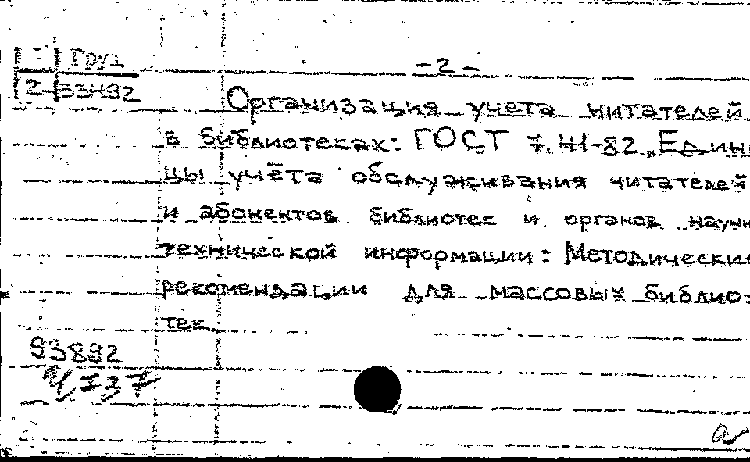 Груз
2 53492
- 2 -
Организация учета читателей
в библиотеках: ГОСТ 7.41-82 „Едини
цы учёта обслуживания читателей
и абонентов библиотек и органов научн
технической информации: Методические
рекомендации для массовых библио-
тек
93892